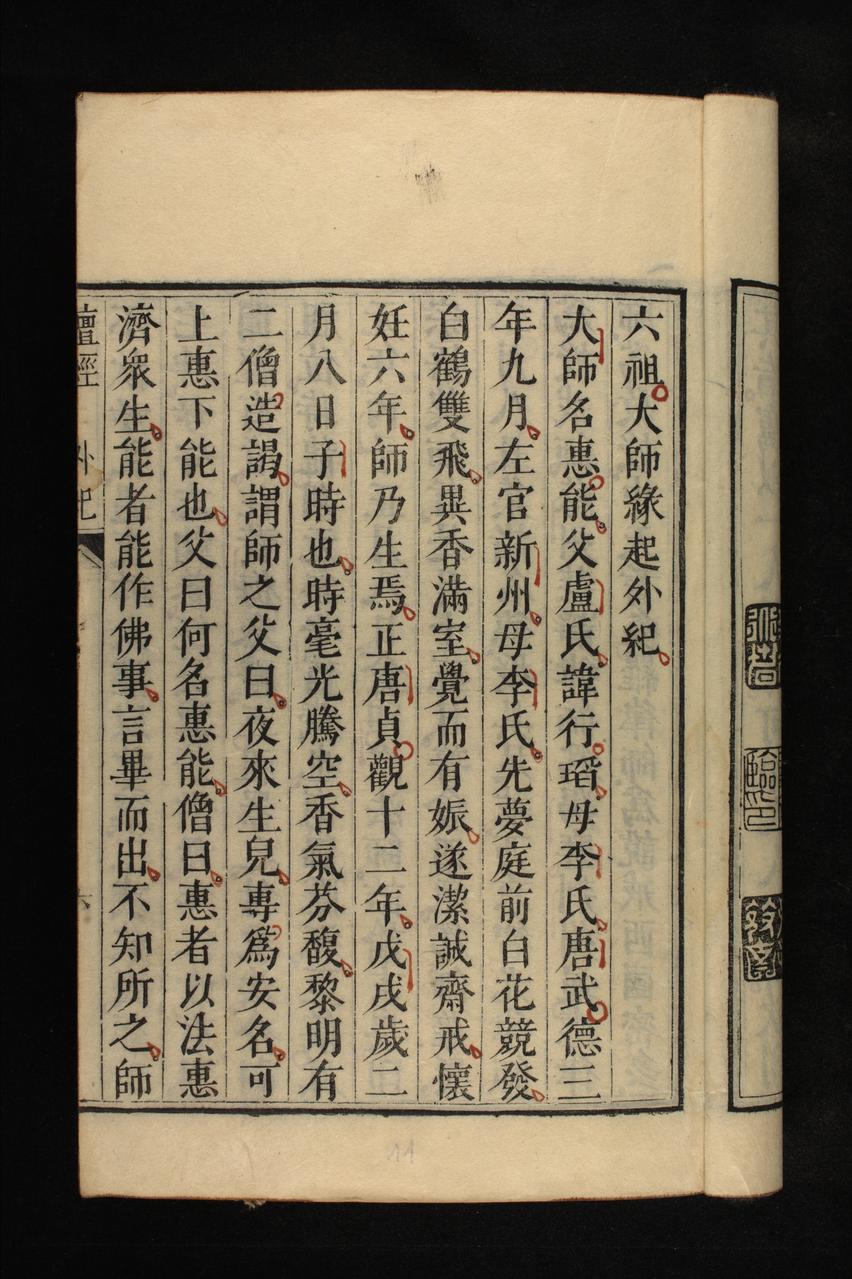 六祖大師緣起外紀
大師名惠能父盧氏諱行瑫母李氏唐武德三
年九月左官新州母李氏先夢庭前白花競發
白鶴雙飛異香滿室覺而有娠遂潔誠齋戒懷
妊六年師乃生焉正唐貞觀十二年戊戌歲二
月八日子時也時毫光騰空香氣芬馥黎明有
二僧造謁謂師之父曰夜來生兒專爲安名可
上惠下能也父曰何名惠能僧曰惠者以法惠
濟衆生能者能作佛事言畢而出不知所之師
壇經 外紀 六